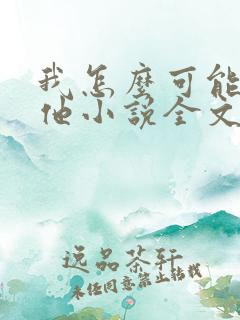 我怎麽可能
他小說全文
逸品茶轩
未经同意禁止转载